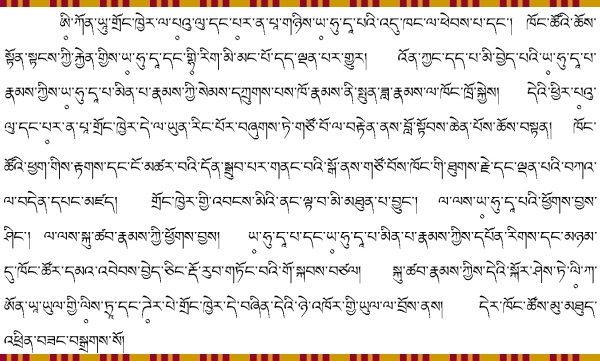 ཨི༹་ཀོན་ཡཱུ་གྲོང་ཁྱེར་ལ་པ༹འུ་ལུ་དང་པ༹ར་ན་པཱ་གཉིས་ཡ༹་ཧུ་དཱ་པའི་འདུ་ཁང་ལ་ཕེབས་པ་དང་། ཁོང་ཚོའི་ཆོས་
སྟོན་སྟངས་ཀྱི་རྐྱེན་གྱིས་ཡ༹་ཧུ་དཱ་དང་གྷི༹་རིག་མི་མང་པོ་དད་ལྡན་པར་གྱུར། འོན་ཀྱང་དད་པ་མི་བྱེད་པའི་ཡ༹་ཧུ་དཱ་པ་
རྣམས་ཀྱིས་ཡ༹་ཧུ་དཱ་པ་མིན་པ་རྣམས་ཀྱི་སེམས་དཀྲུགས་པས་ཁོ་རྣམས་ནི་སྤུན་ཟླ་རྣམས་ལ་ཁོང་ཁྲོ་སྐྱེས། དེའི་ཕྱིར་པ༹འུ་
ལུ་དང་པ༹ར་ན་པཱ་གྲོང་ཁྱེར་དེ་ལ་ཡུན་རིང་པོར་བཞུགས་ཏེ་གཙོ་བོ་ལ་བརྟེན་ནས་བློ་སྟོབས་ཆེན་པོས་ཆོས་བསྟན། ཁོང་
ཚོའི་ཕྱག་གིས་རྟགས་དང་ངོ་མཚར་བའི་དོན་སྒྲུབ་པར་གནང་བའི་སྒོ་ནས་གཙོ་བོས་ཁོང་གི་ཐུགས་རྗེ་དང་ལྡན་པའི་བཀའ་
ལ་བདེན་དཔང་མཛད། གྲོང་ཁྱེར་གྱི་འབངས་མིའི་ནང་ལྟ་བ་མི་མཐུན་པ་བྱུང་། ལ་ལས་ཡ༹་ཧུ་དཱ་པའི་ཕྱོགས་བྱས་
ཤིང་། ལ་ལས་སྐུ་ཚབ་རྣམས་ཀྱི་ཕྱོགས་བྱས། ཡ༹་ཧུ་དཱ་པ་དང་ཡ༹་ཧུ་དཱ་པ་མིན་པ་རྣམས་ཀྱིས་དཔོན་རིགས་དང་མཉམ་
དུ་ཁོང་ཚོར་དམའ་འབེབས་བྱེད་ཅིང་རྡོ་རུབ་གཏོང་བའི་གོ་སྐབས་བཙལ། སྐུ་ཚབ་རྣམས་ཀྱིས་དེའི་སྐོར་ཤེས་ཏེ་ལི༹་ཀ་
ཨོན་ཡཱ་ཡུལ་གྱི་ལི༹ས་ཏྲཱ་དང་དེ༹ར་པེ་གྲོང་ཁྱེར་དེ་བཞིན་དེའི་ཉེ་འཁོར་གྱི་ཡུལ་ལ་བྲོས་ནས། དེར་ཁོང་ཚོས་མུ་མཐུད་
འཕྲིན་བཟང་བསྒྲགས་སོ།